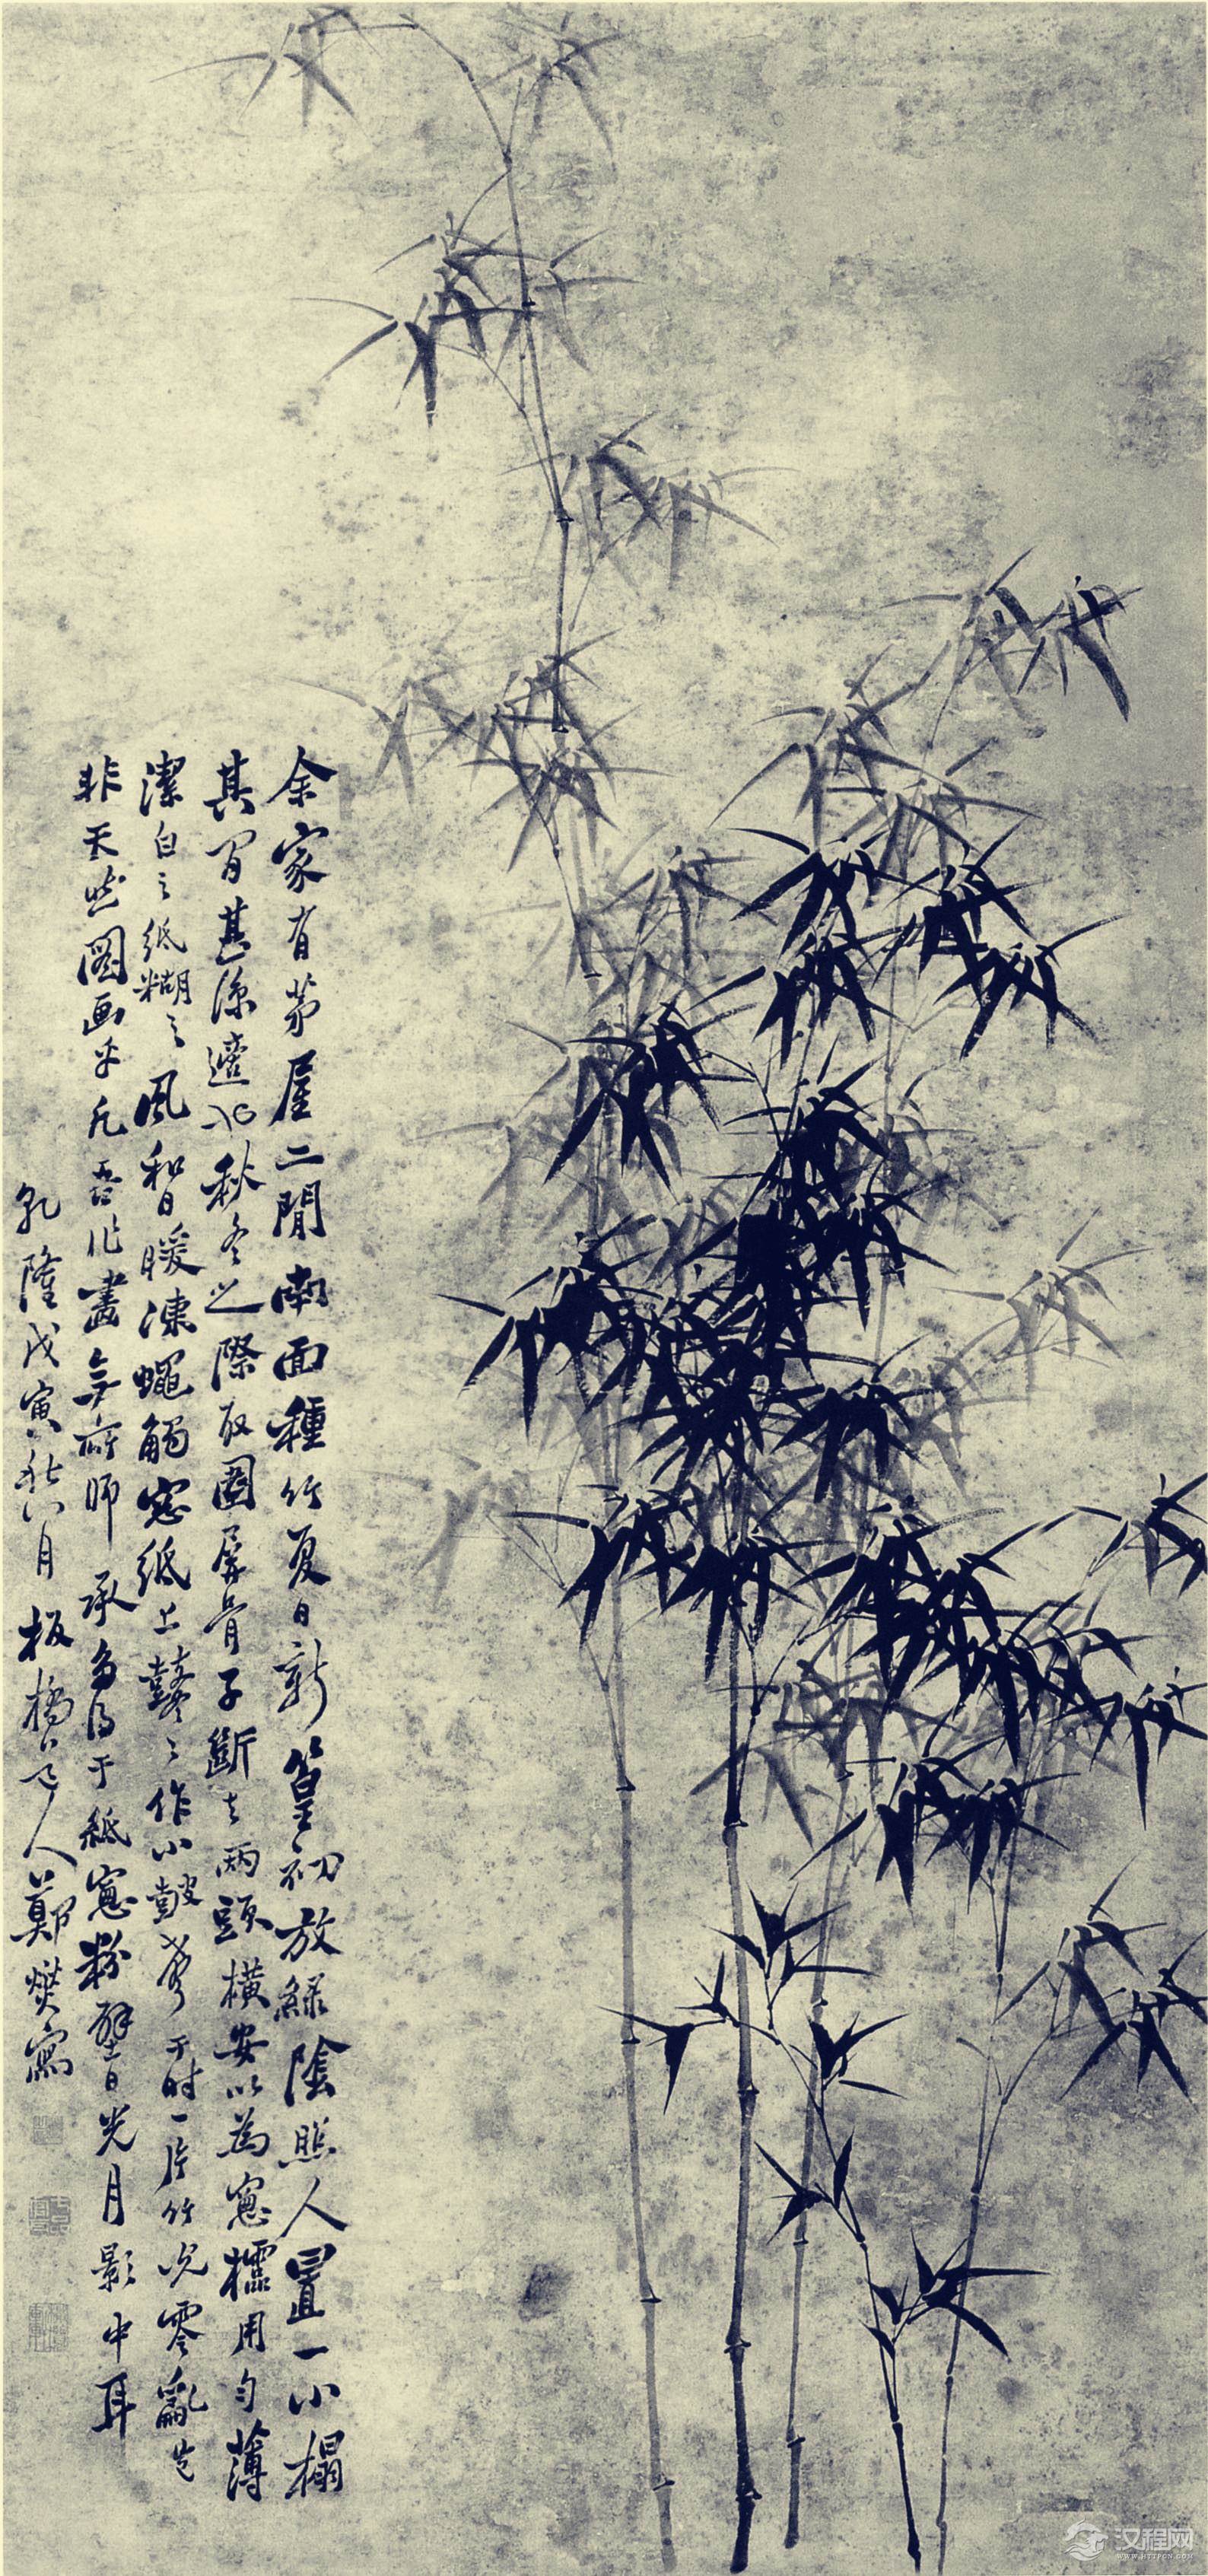 余家有茅屋二間南面種竹夏日新篁初放綠陰照人置一小榻
其間甚凉適也秋冬之際取圍屏骨子斷去兩頭橫安以為窓櫺用勻薄
潔白之紙糊之風和日暖凍蠅觸窓紙上鼕〻作小鼓聲于時一片竹影零亂豈
非天然圖画乎凡吾作畫無所師承多得于紙窓粉壁日光月影中耳
乾隆戊寅秋八月板橋道人鄭燮寫
汉程网
WWW.HTTPCN.COM